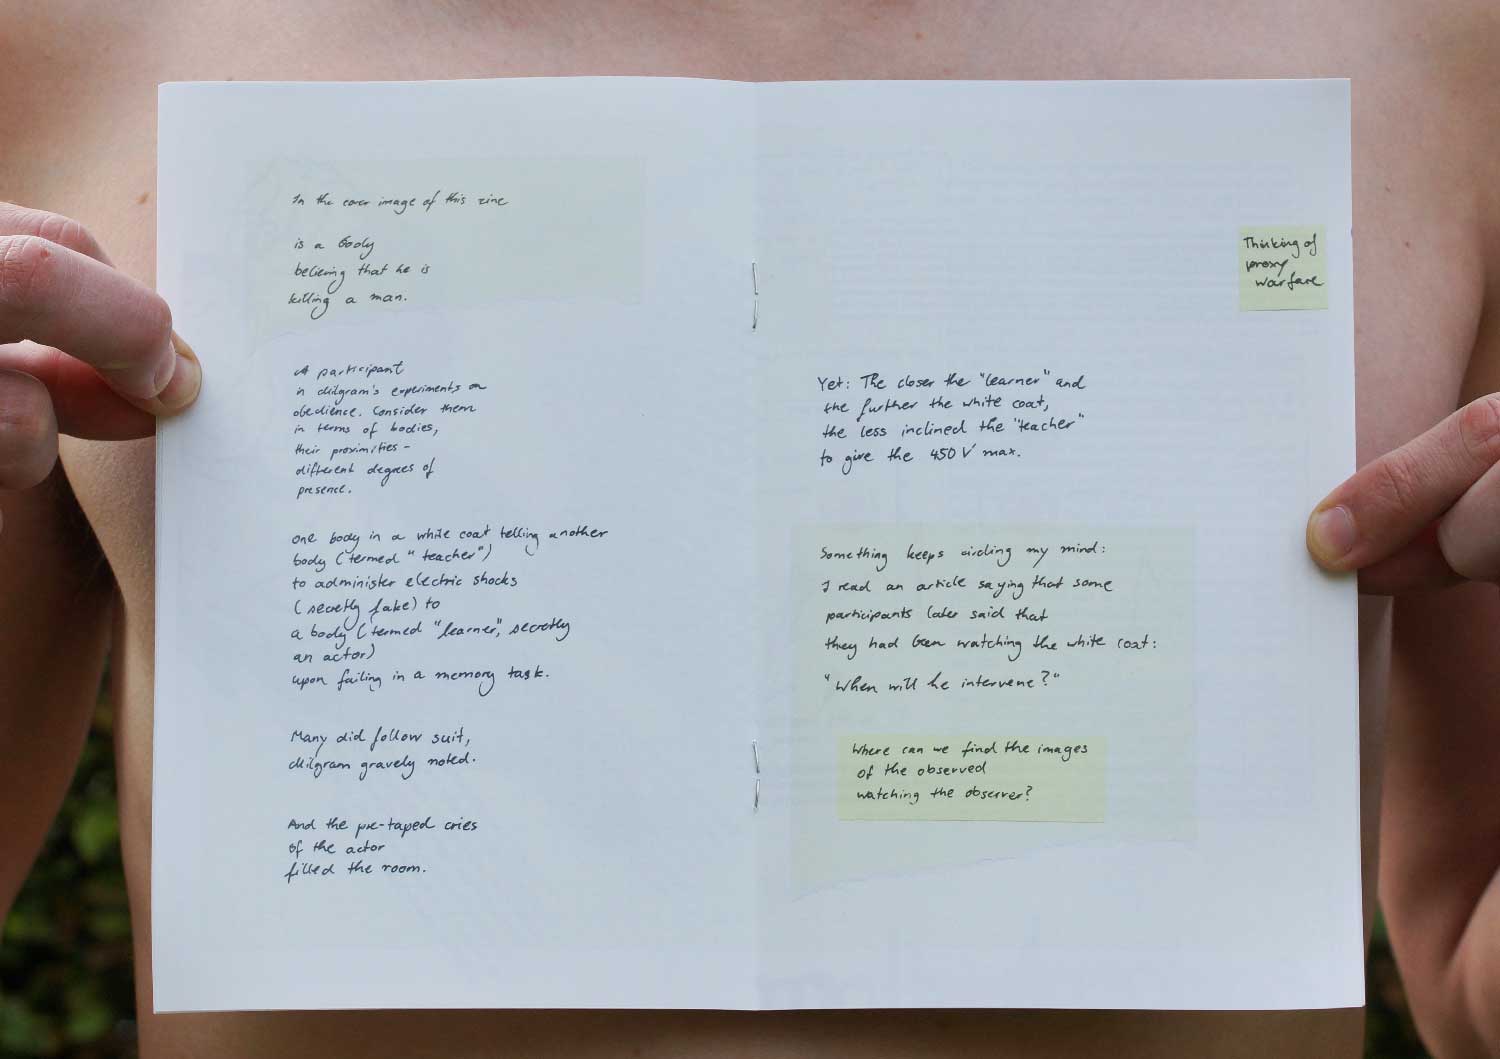 In the cover image of this zine
is a body
believing that he is
killing a man.
A participant
in Milgram's experiments on
obedience. Consider them
in terms of bodies,
their proximities –
different degrees of
presence.
one body in a white coat telling another
body (termed "teacher")
to administer electric shocks
(secretly fake) to
a body (termed "learner", secretly
an actor)
upon failing in a memory task.
Many did follow suit,
Milgram gravely noted.
And the pre-taped cries
of the actor
filled the room.
Thinking of
proxy
warfare
Yet: The closer the "learner" and
the further the white coat,
the less inclined the "teacher"
to give the 450 V max.
Something keeps circling my mind:
I read an article saying that some
participants later said that
they had been watching the white coat:
"When will he intervene?"
Where can we find the images
of the observed
watching the observer?